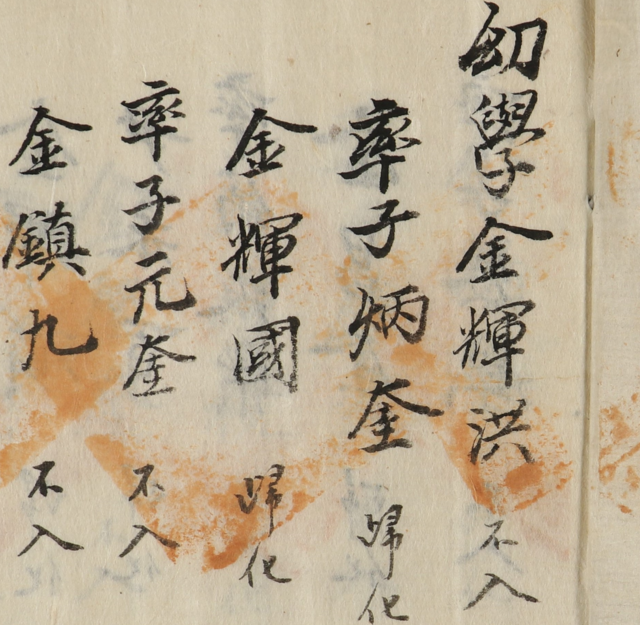 幼學金輝洪 不入
率子炳奎 歸化
金輝國 歸化
率子元奎 不入
金鎮九 不入